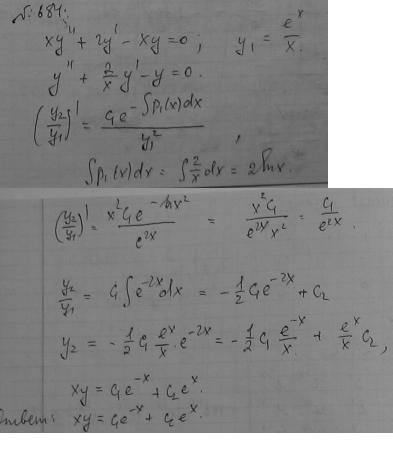 № 681:
xy'' + 2y' - xy = 0 ; y₁ = e^x/x.
y'' + 2/x y' - y = 0.
(y₂/y₁)' = C₁e^(-∫p₁(x)dx)/y₁² ,
∫p₁(x)dx = ∫2/x dx = 2 ln x.
(y₂/y₁)' = x²C₁e^(-ln x²)/e^(2x) = x²C₁/(e^(2x) x²) = C₁/e^(2x).
y₂/y₁ = C₁∫e^(-2x)dx = -1/2 C₁e^(-2x) + C₂
y₂ = -1/2 C₁ e^x/x · e^(-2x) = -1/2 C₁ e^(-x)/x + e^x/x C₂ ,
xy = C₁e^(-x) + C₂e^x.
Ответ: xy = C₁e^(-x) + C₂e^x.